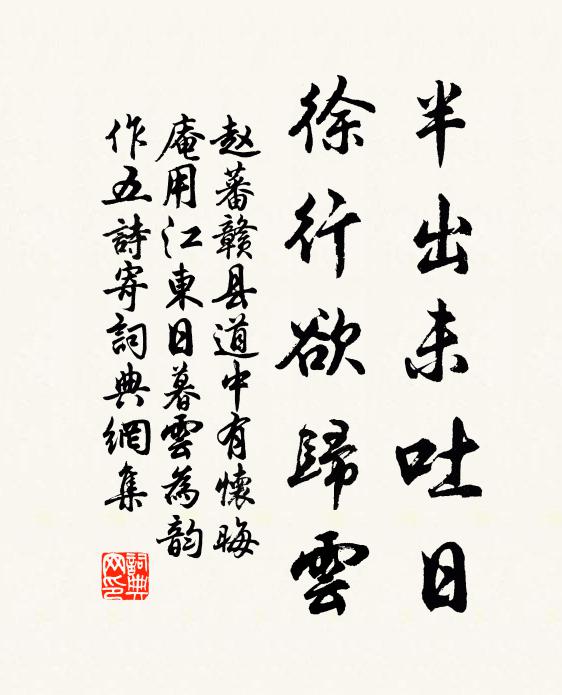 半出未吐日
徐行欲歸雲
赵蕃赣县道中有懷晦
庵用江東日暮雲為韵
作五詩寄詞典網集
詞典
网印